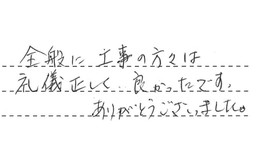 全般に工事の方々は
礼儀正しく、良かったです。
ありがとうございました。